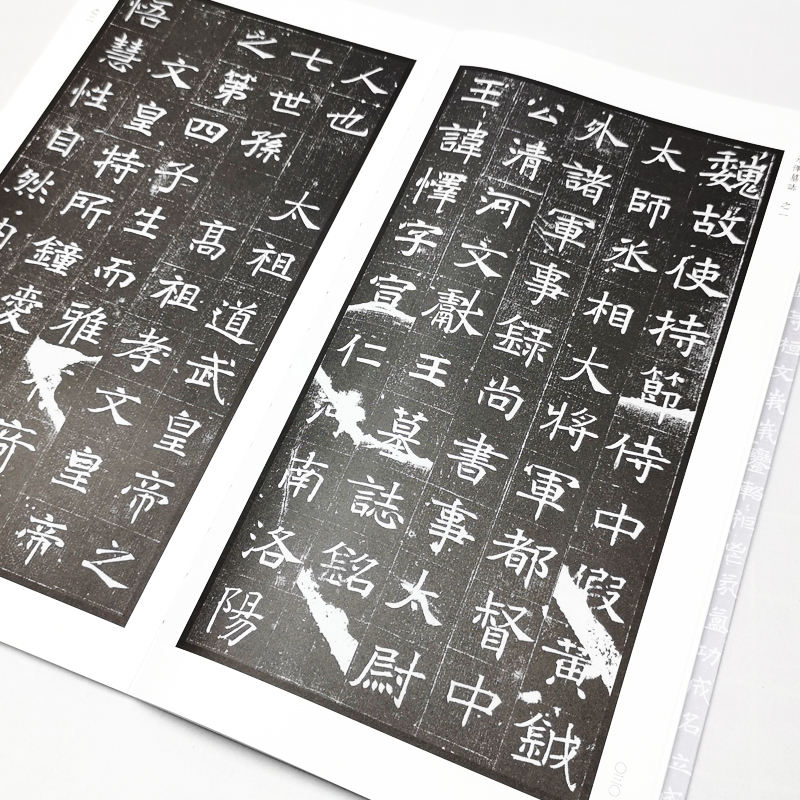 魏故使持節侍中假黃鉞
太師丞相大將軍都督中
外諸軍事錄尚書事太尉
公清河文獻王墓誌銘
王諱懌字宣仁河南洛陽
人也 太祖道武皇帝之
七世孫 高祖孝文皇帝
之第四子生而雅奇
文皇特所鐘愛
悟慧性自然内
墓誌 之一